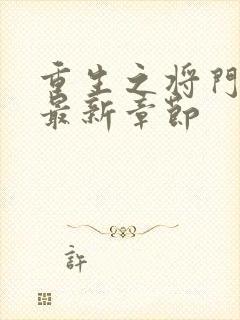 重生之将门
最新章節
許